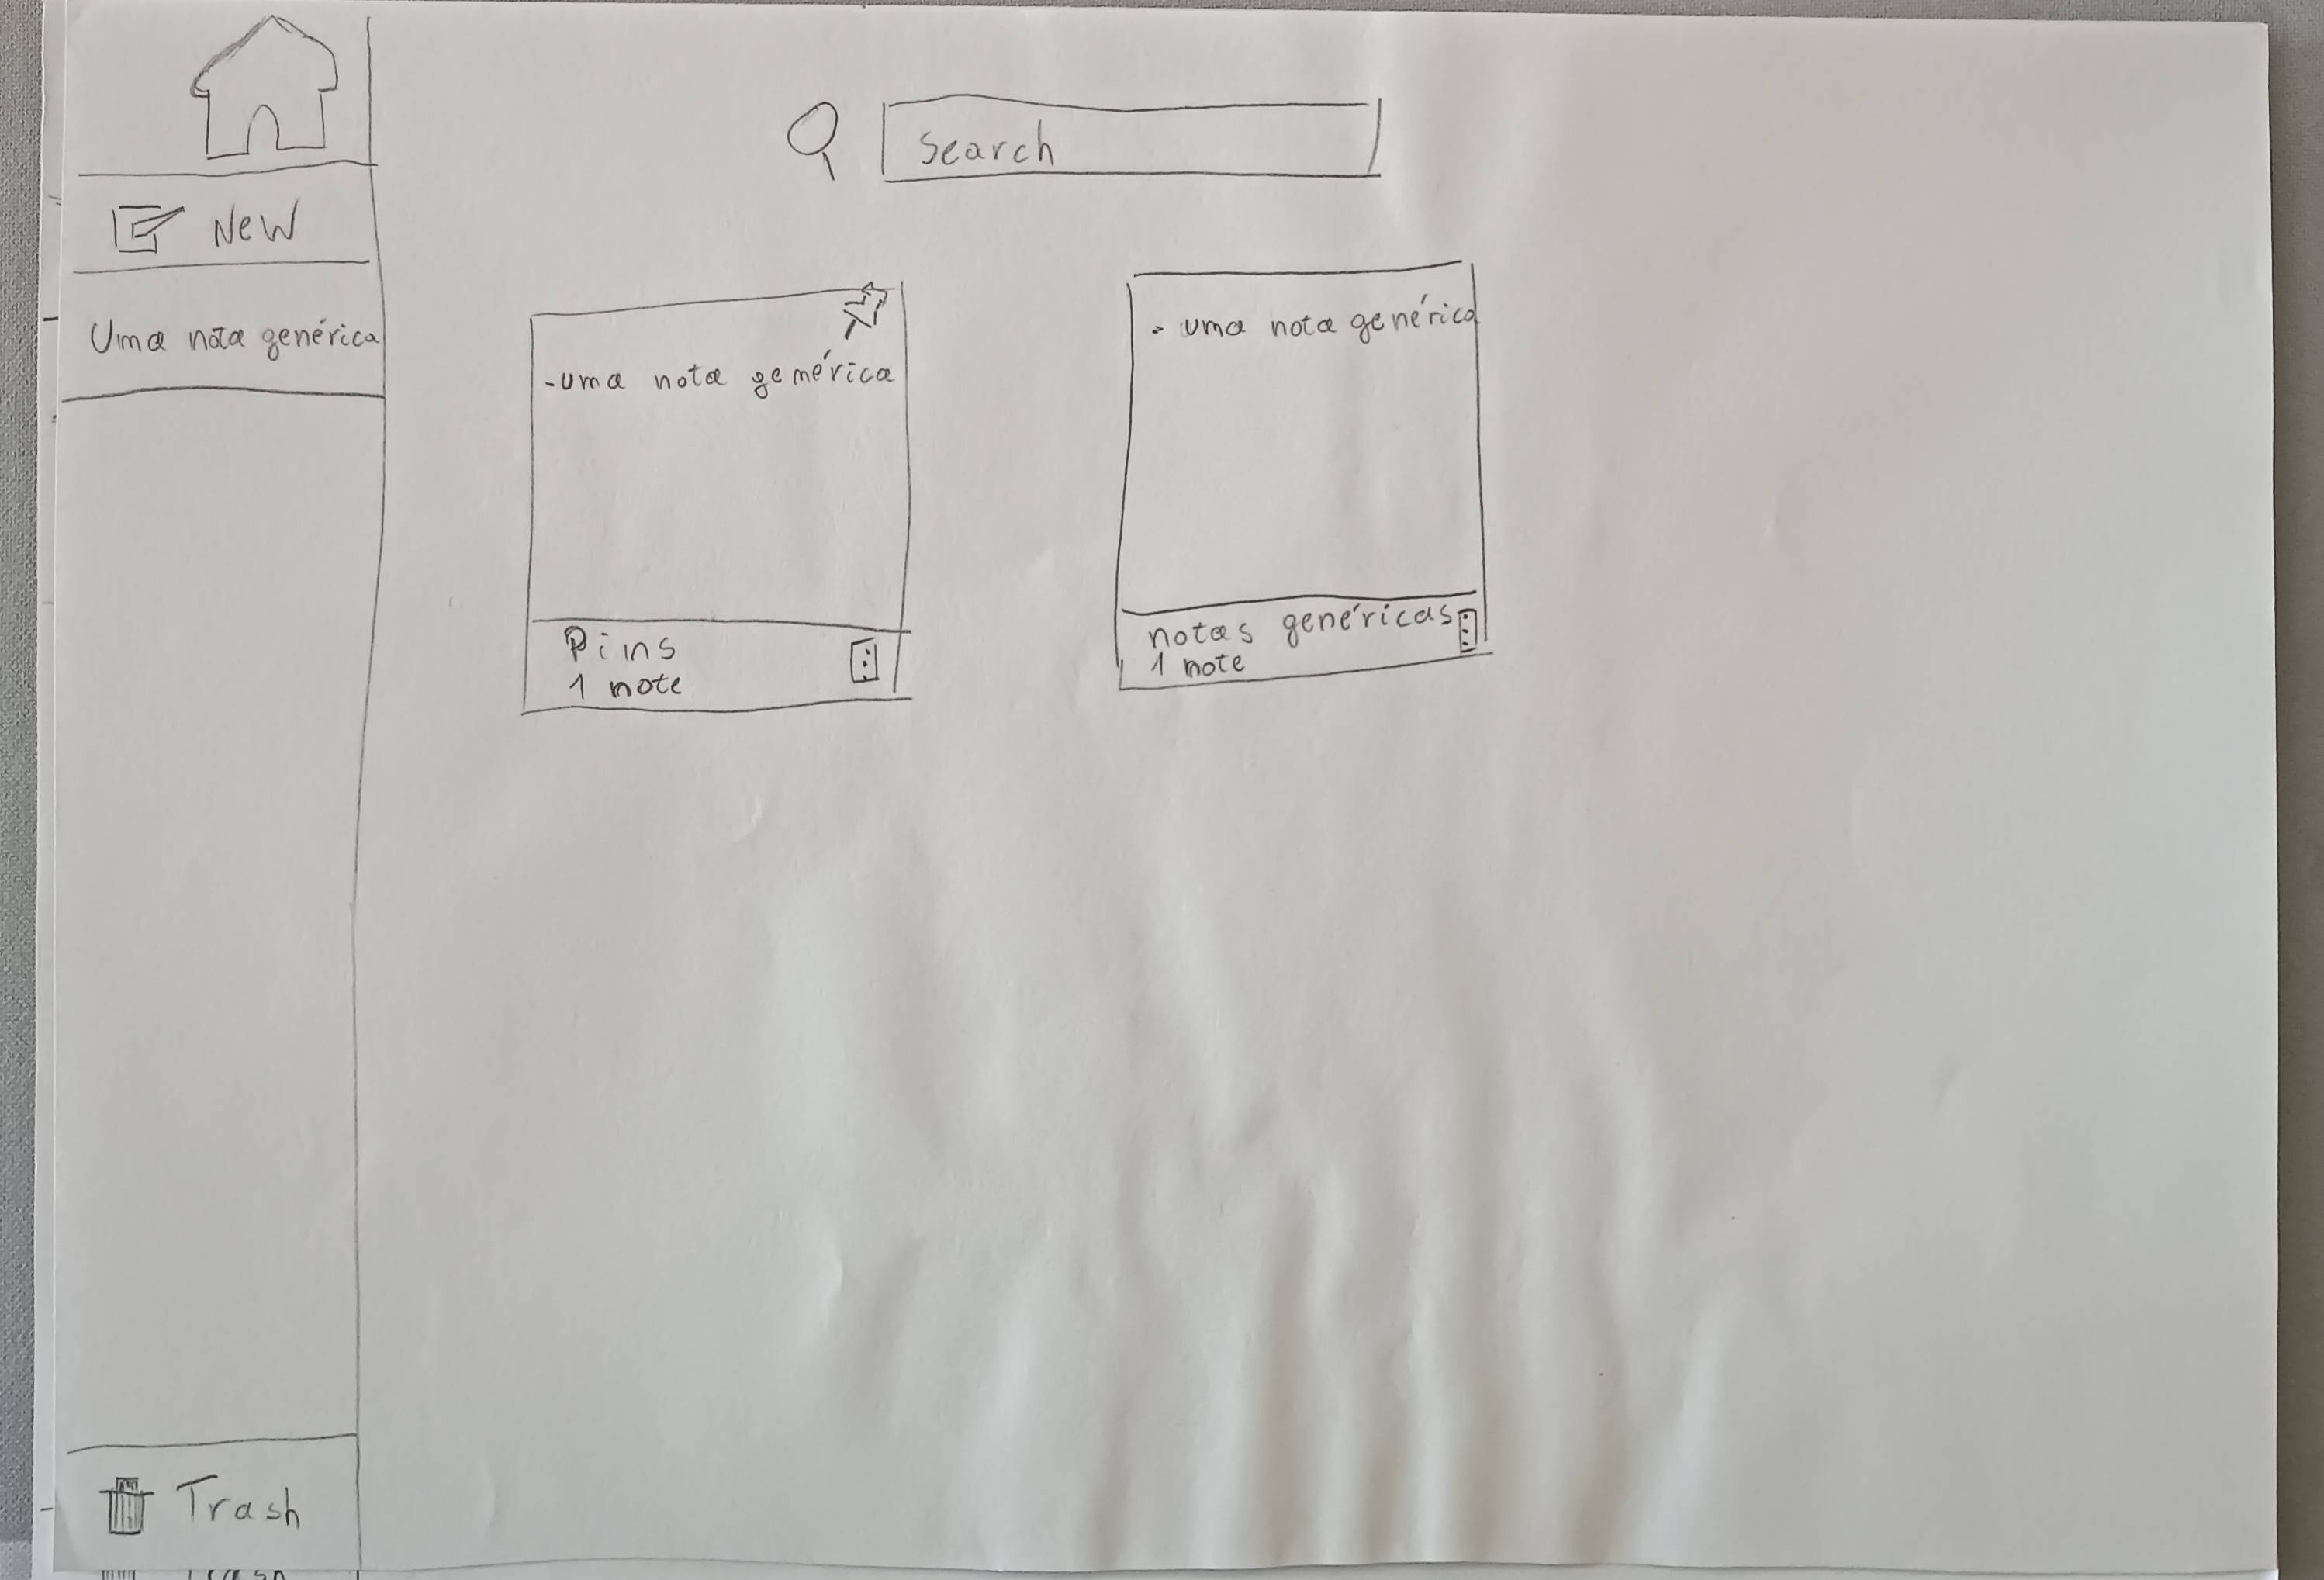 New
Uma nota genérica
Trash
Search
-uma nota genérica
Pins
1 note
- uma nota genérica
notas genéricas
1 note
Trash